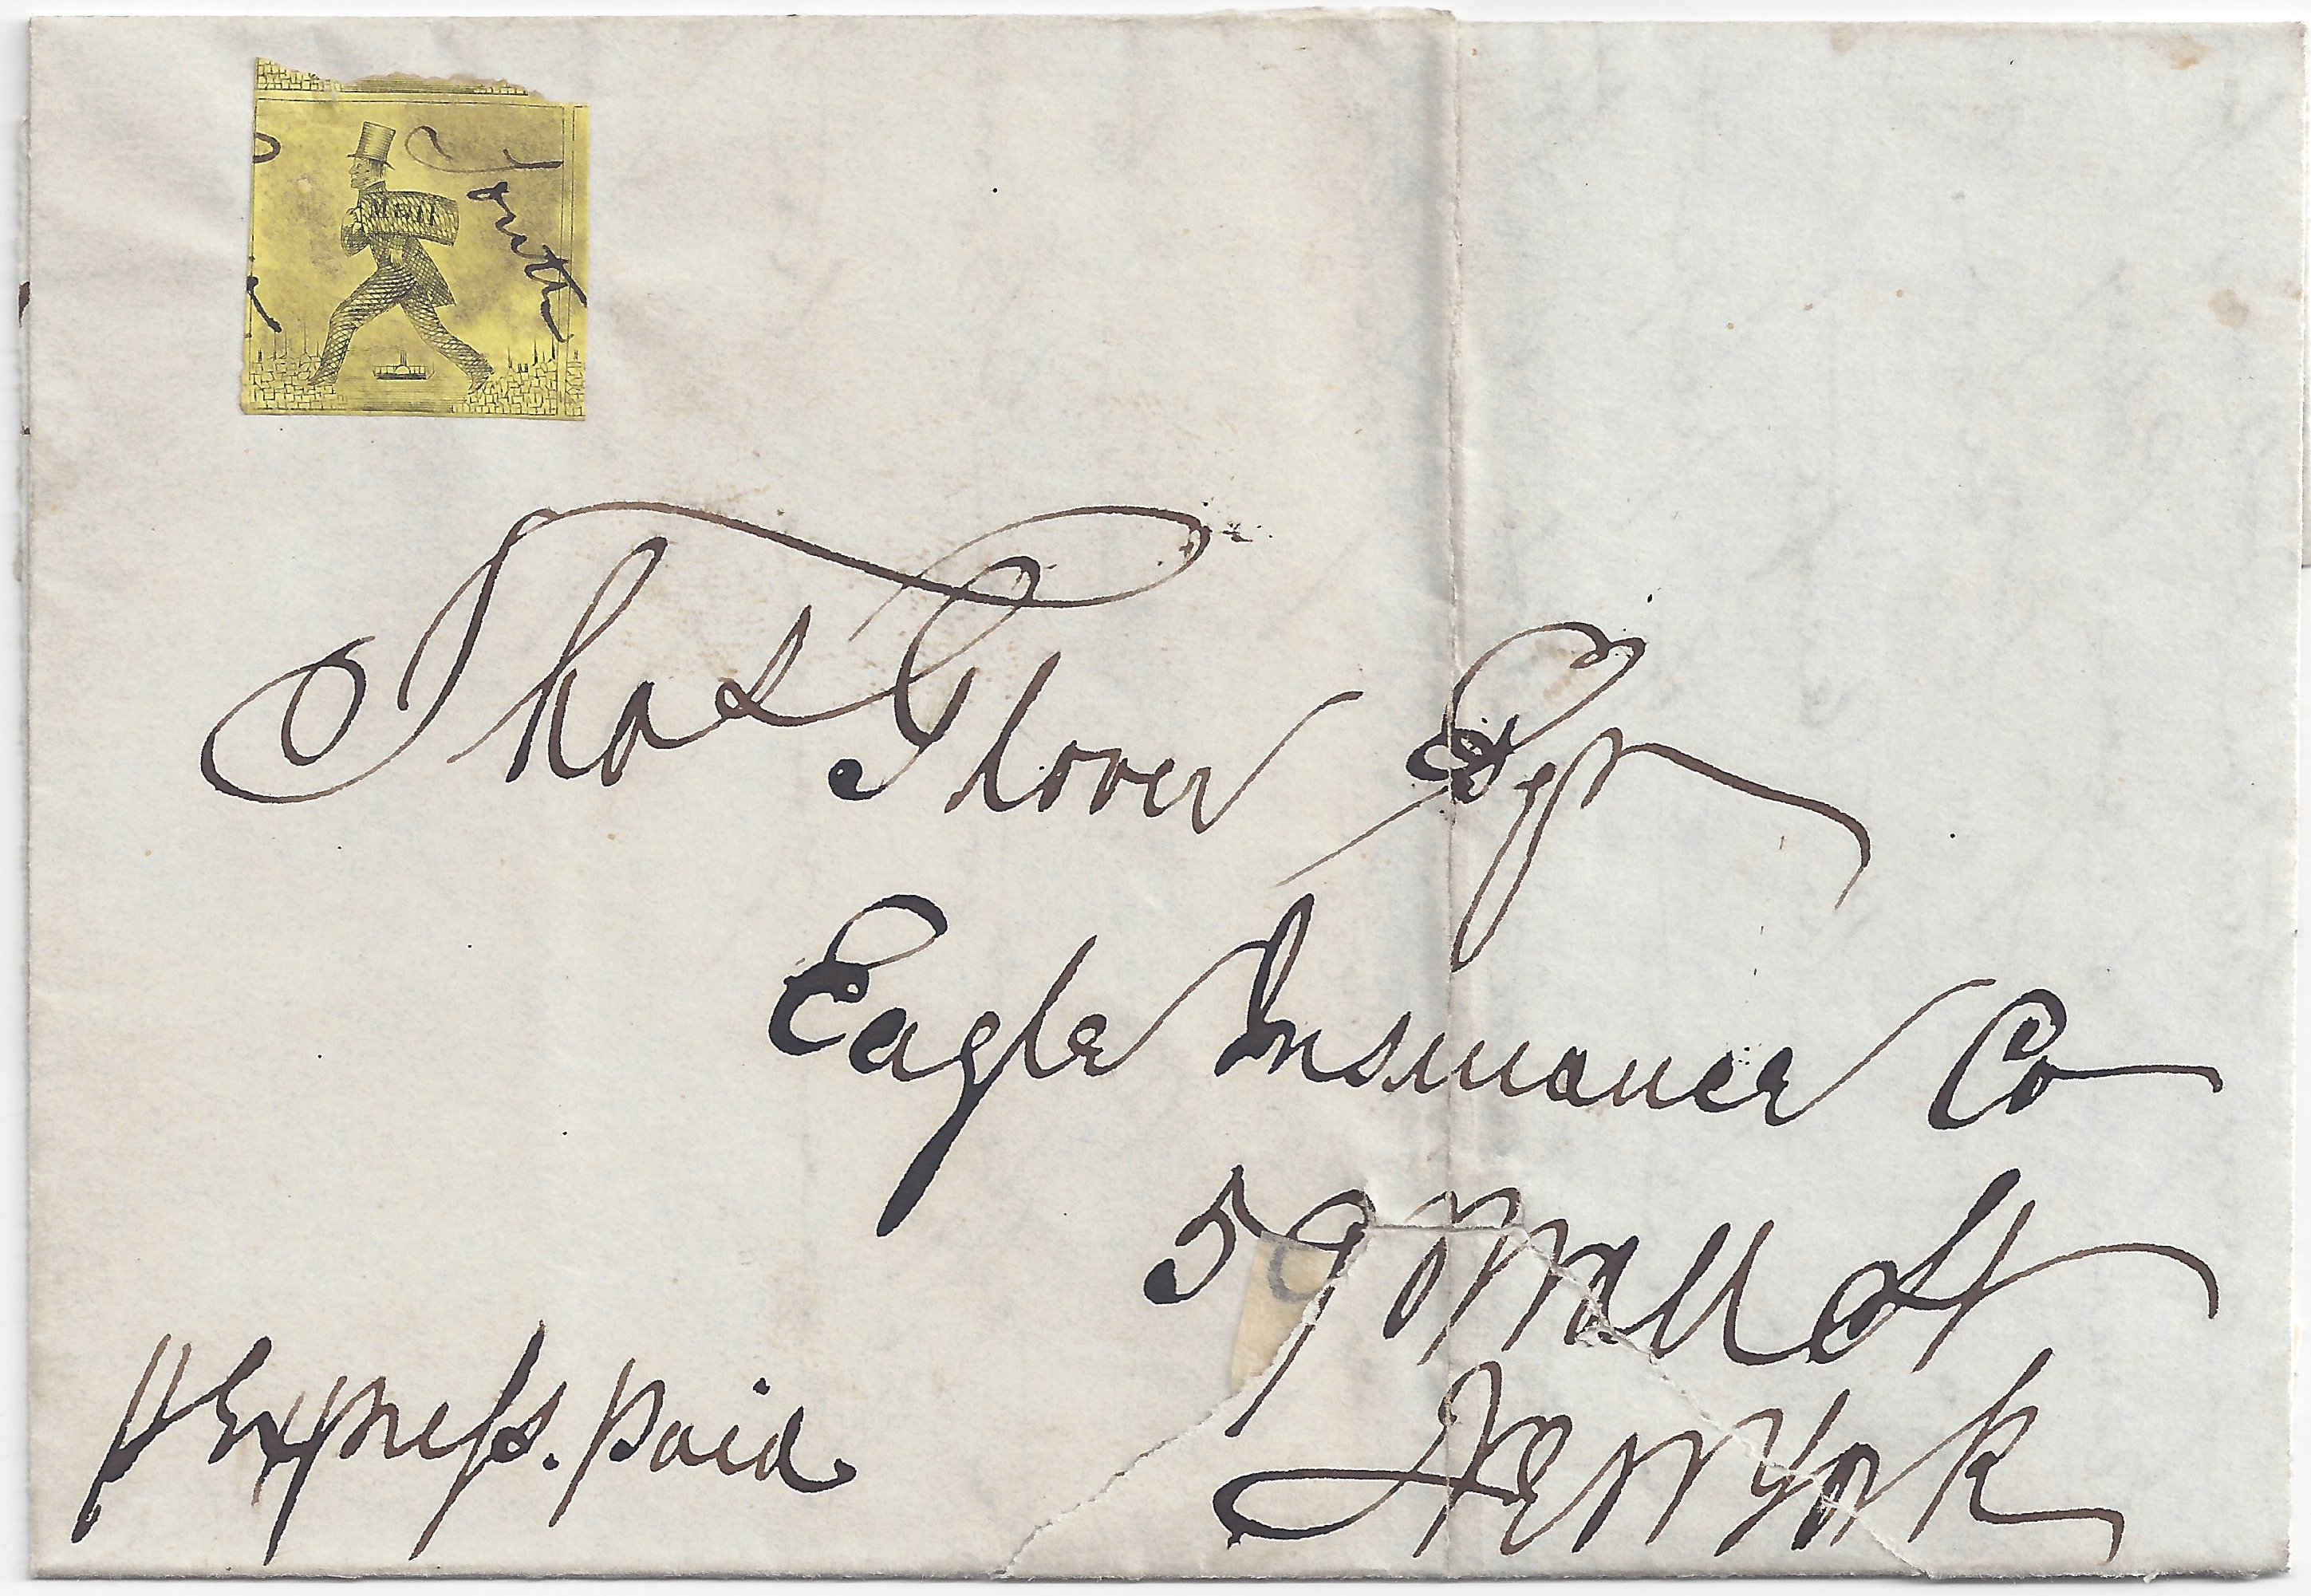 Mail
South
Thos Glover Esqr
Eagle Insurance Co
59 Wall St
New York
pr Express. paid